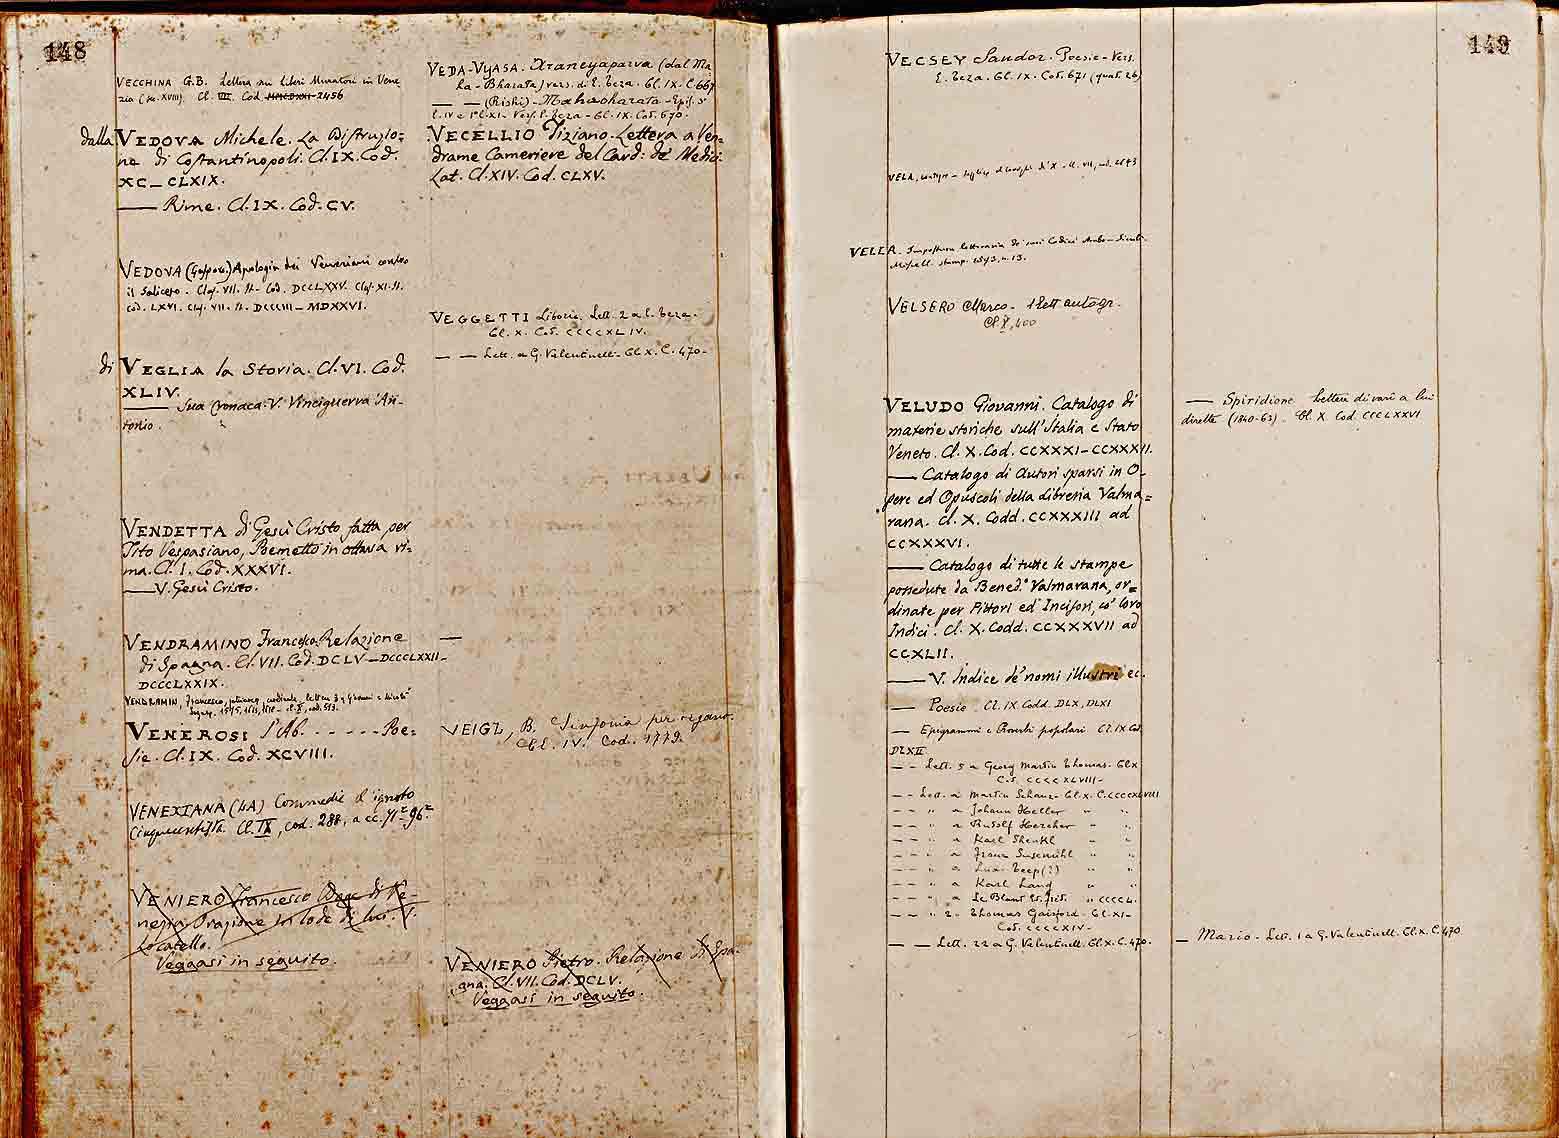 148
VECCHINA G.B. Lettera su Liberi Muratori in Vene
zia (sec. XVIII). Cl. VII. Cod. 2456
dalla VEDOVA Michele. La Distruzio=
ne di Costantinopoli. Cl. IX. Cod.
XC _ CLXIX.
—— Rime. Cl. IX. Cod. CV.
VEDOVA (Gasparo) Apologia dei Veneziani contro
il Saliceto. Clas. VII. It. Cod. DCCLXXV. Clas. XI. It.
Cod. LXVI. Clas. VII. It. DCCCIII — MDXXVI.
di VEGLIA la Storia. Cl. VI. Cod.
XLIV.
—— Sua Cronaca. V. Vinciguerra An-
tonio.
VENDETTA di Gesù Cristo fatta per
Tito Vespasiano, Poemetto in ottava ri=
ma. Cl. I. Cod. XXXVI.
—— V. Gesù Cristo.
VENDRAMINO Francesco. Relazione
di Spagna. Cl. VII. Cod. DCLV — DCCCLXXII —
DCCCLXXIX.
VENDRAMIN, Francesco, patriarca, cardinale, lettere
VENEROSI l'Ab. - - - - - Poe=
sie. Cl. IX. Cod. XCVIII.
VENEXIANA (LA) Commedia d'ignoto
Cinquecentista. Cl. IX, cod. 288, a cc. 71r-96r
VENIERO Francesco Doge di Ve
nezia Orazione in lode di lui. V.
Locatello.
Veggasi in seguito.
VEDA-VYASA. Araneyaparva (dal Ma
ha-Bharata) vers. di E. Teza. Cl. IX. C. 667
— — (Rishi) - Mahabharata - Epis. 5°
VECELLIO Tiziano. Lettera a Ven=
drame Cameriere del Card: de' Medici.
Lat. Cl. XIV. Cod. CLXV.
VEGGETTI Liborio. Lett. 2 a E. Teza.
Cl. X. Cod. CCCCXLIV.
— — Lett. a G. Valentinelli - Cl. X. C. 470.
——
VEIGL, B. Sinfonia per organo.
Cl. IV. Cod. 1779.
VENIERO Pietro. Relazione di Spa-
gna. Cl. VII. Cod. DCLV.
Veggasi in seguito.
149
VECSEY Sandor. Poesie - Vers.
E. Teza. Cl. IX. Cod. 671 (quad. 26)
VELA,
VELLA. Impostura letteraria de' suoi Codici Arabo-Siculi.
Miscell. stamp. 2573. n. 13.
VELSERO Marco. 1 lett autogr.
Cl. X, 400
VELUDO Giovanni. Catalogo di
materie storiche sull'Italia e Stato
Veneto. Cl. X. Cod. CCXXXI — CCXXXII.
—— Catalogo di Autori sparsi in O-
pere ed Opuscoli della Libreria Valma=
rana. Cl. X. Codd. CCXXXIII ad
CCXXXVI.
—— Catalogo di tutte le stampe
possedute da Bened.° Valmarana, or=
dinate per Pittori ed Incisori, co' loro
Indici. Cl. X. Codd. CCXXXVII ad
CCXLII.
—— V. Indice de' nomi illustri ec.
— Poesie. Cl. IX Codd. DLX, DLXI
— Epigrammi e Proverbi popolari Cl. IX Cod.
DLXII
— — Lett. 5 a Georg Martin Thomas. Cl. X
Cod. CCCCXLVIII -
— — Lett. a Martin Schanz - Cl. X. C. CCCCXLVIII
— — " a Johann Heller " "
— — " a Rudolf Hercher " "
— — " a Karl Shenkl " "
— — " a Franz Susemihl " "
— — " a Teep (?) " "
— — " a Karl Land " "
— — " a Le Blant " CCCCL.
— — " 2 a Thomas Gaisford - Cl. XI -
Cod. CCCCXIV -
— — Lett. 22 a G. Valentinelli. Cl. X. C. 470.
— Spiridione Lettere di varii a lui
dirette (1840-63). Cl. X. Cod. CCCLXXVI
— Mario - Lett. 1 a G. Valentinelli. Cl. X. C. 470